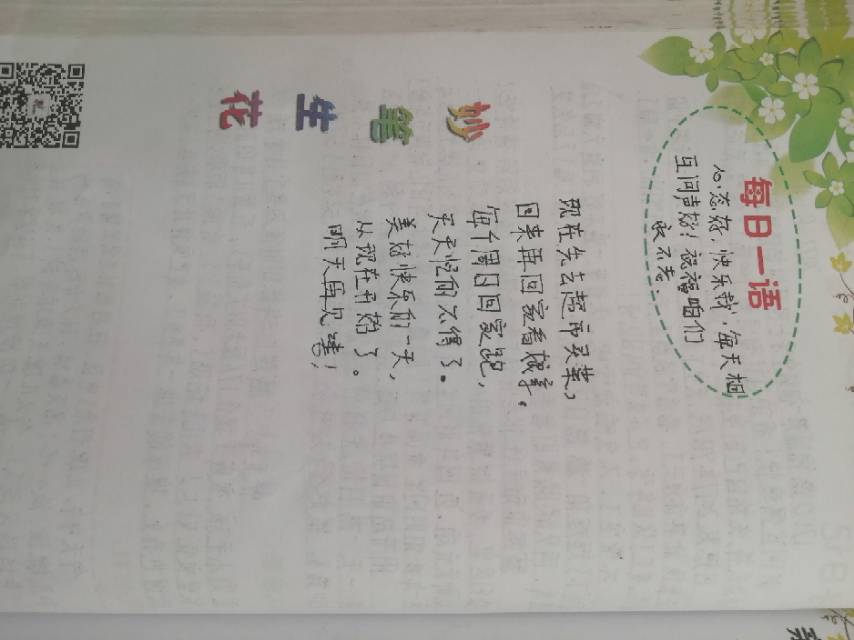 每日一语
心态好，快乐哉，每天相
互问声好！祝福咱们
永不老.
现在先去超市买菜，
回来再回家看越亭。
每个周日回家跑，
天天忙的不得了。
美好快乐的一天，
从现在开始了。
明天再见喽！
妙笔生花